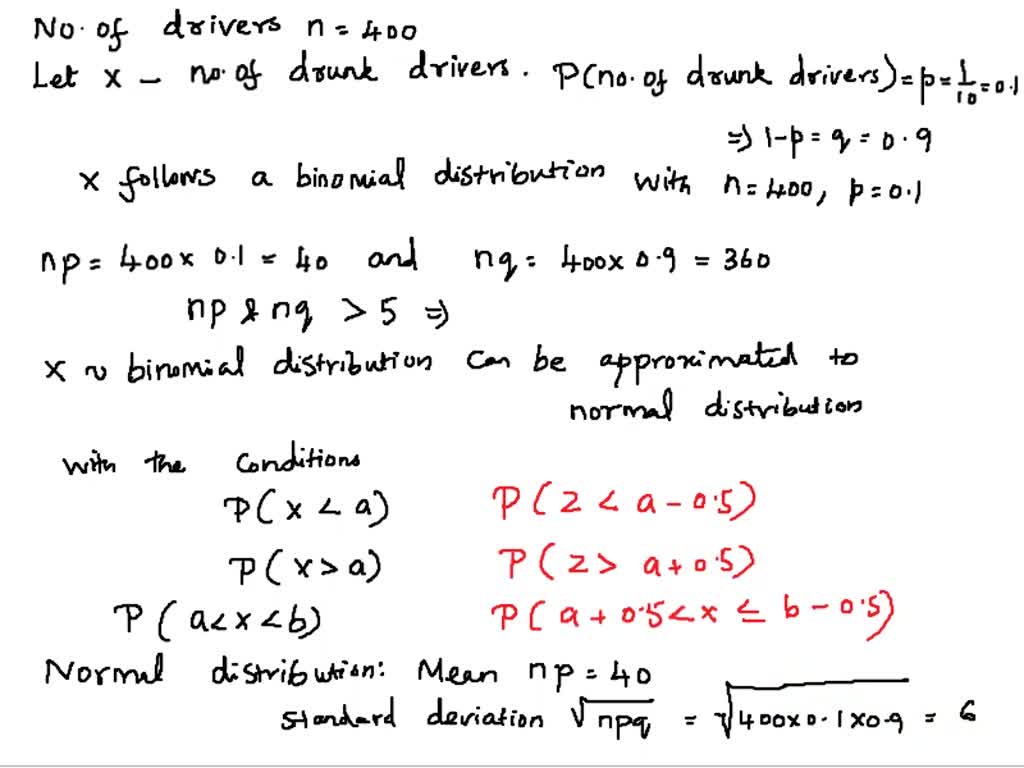 No. of drivers n = 400
Let x - no. of drunk drivers. P(no. of drunk drivers) = p = 1/10 = 0.1
⇒ 1-p = q = 0.9
x follows a binomial distribution with n = 400, p = 0.1
np = 400 x 0.1 = 40 and nq = 400 x 0.9 = 360
np & nq > 5 ⇒
x ~ binomial distribution can be approximated to
normal distribution
with the conditions
P(x < a) P(z < a - 0.5)
P(x > a) P(z > a + 0.5)
P(a < x < b) P(a + 0.5 < x ≤ b - 0.5)
Normal distribution: Mean np = 40
standard deviation √npq = √400 x 0.1 x 0.9 = 6